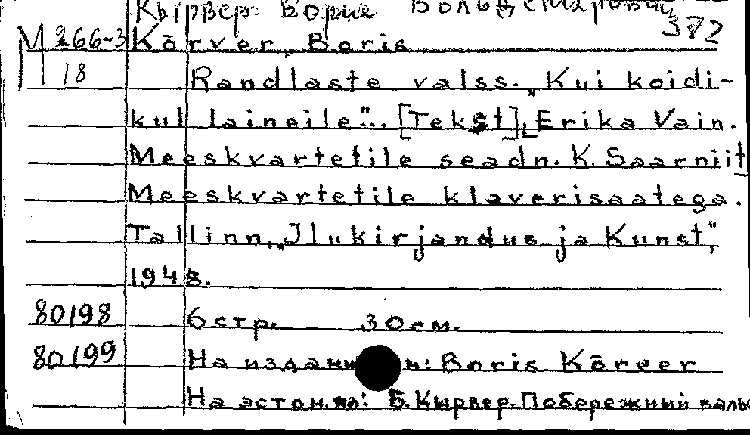 Кырвер. Борис Вольдемарович
382
М 266-3 Kõrver, Boris
18 Randlaste valss. „Kui koidi-
kul laineile".. [Tekst]: Erika Vain.
Meeskvartetile seadn. K. Saarniit
Meeskvartetile klaverisaatega.
Tallinn, „Ilukirjandus ja Kunst",
1948.
80198 6 стр. 30см.
80199 На издании: Boris Kõrver
На эстон.яз: Б. Кырвер. Побережный валь